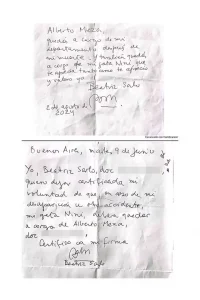 Alberto Meza,
queda a cargo de mi
departamento después de
mi muerte y también queda
a cargo de mi gata Nini que
te quiere tanto como te aprecio
y valoro yo
Beatriz Sarlo
2 de agosto de
2024
Buenos Aires, martes, 9 de junio
Yo, Beatriz Sarlo, doc
quiero dejar certificada mi
voluntad de que en caso de mi
desaparición u otro accidente,
mi gata Nini, deben quedar
a cargo de Alberto Meza,
doc
Certifico con mi firma
Beatriz Sarlo